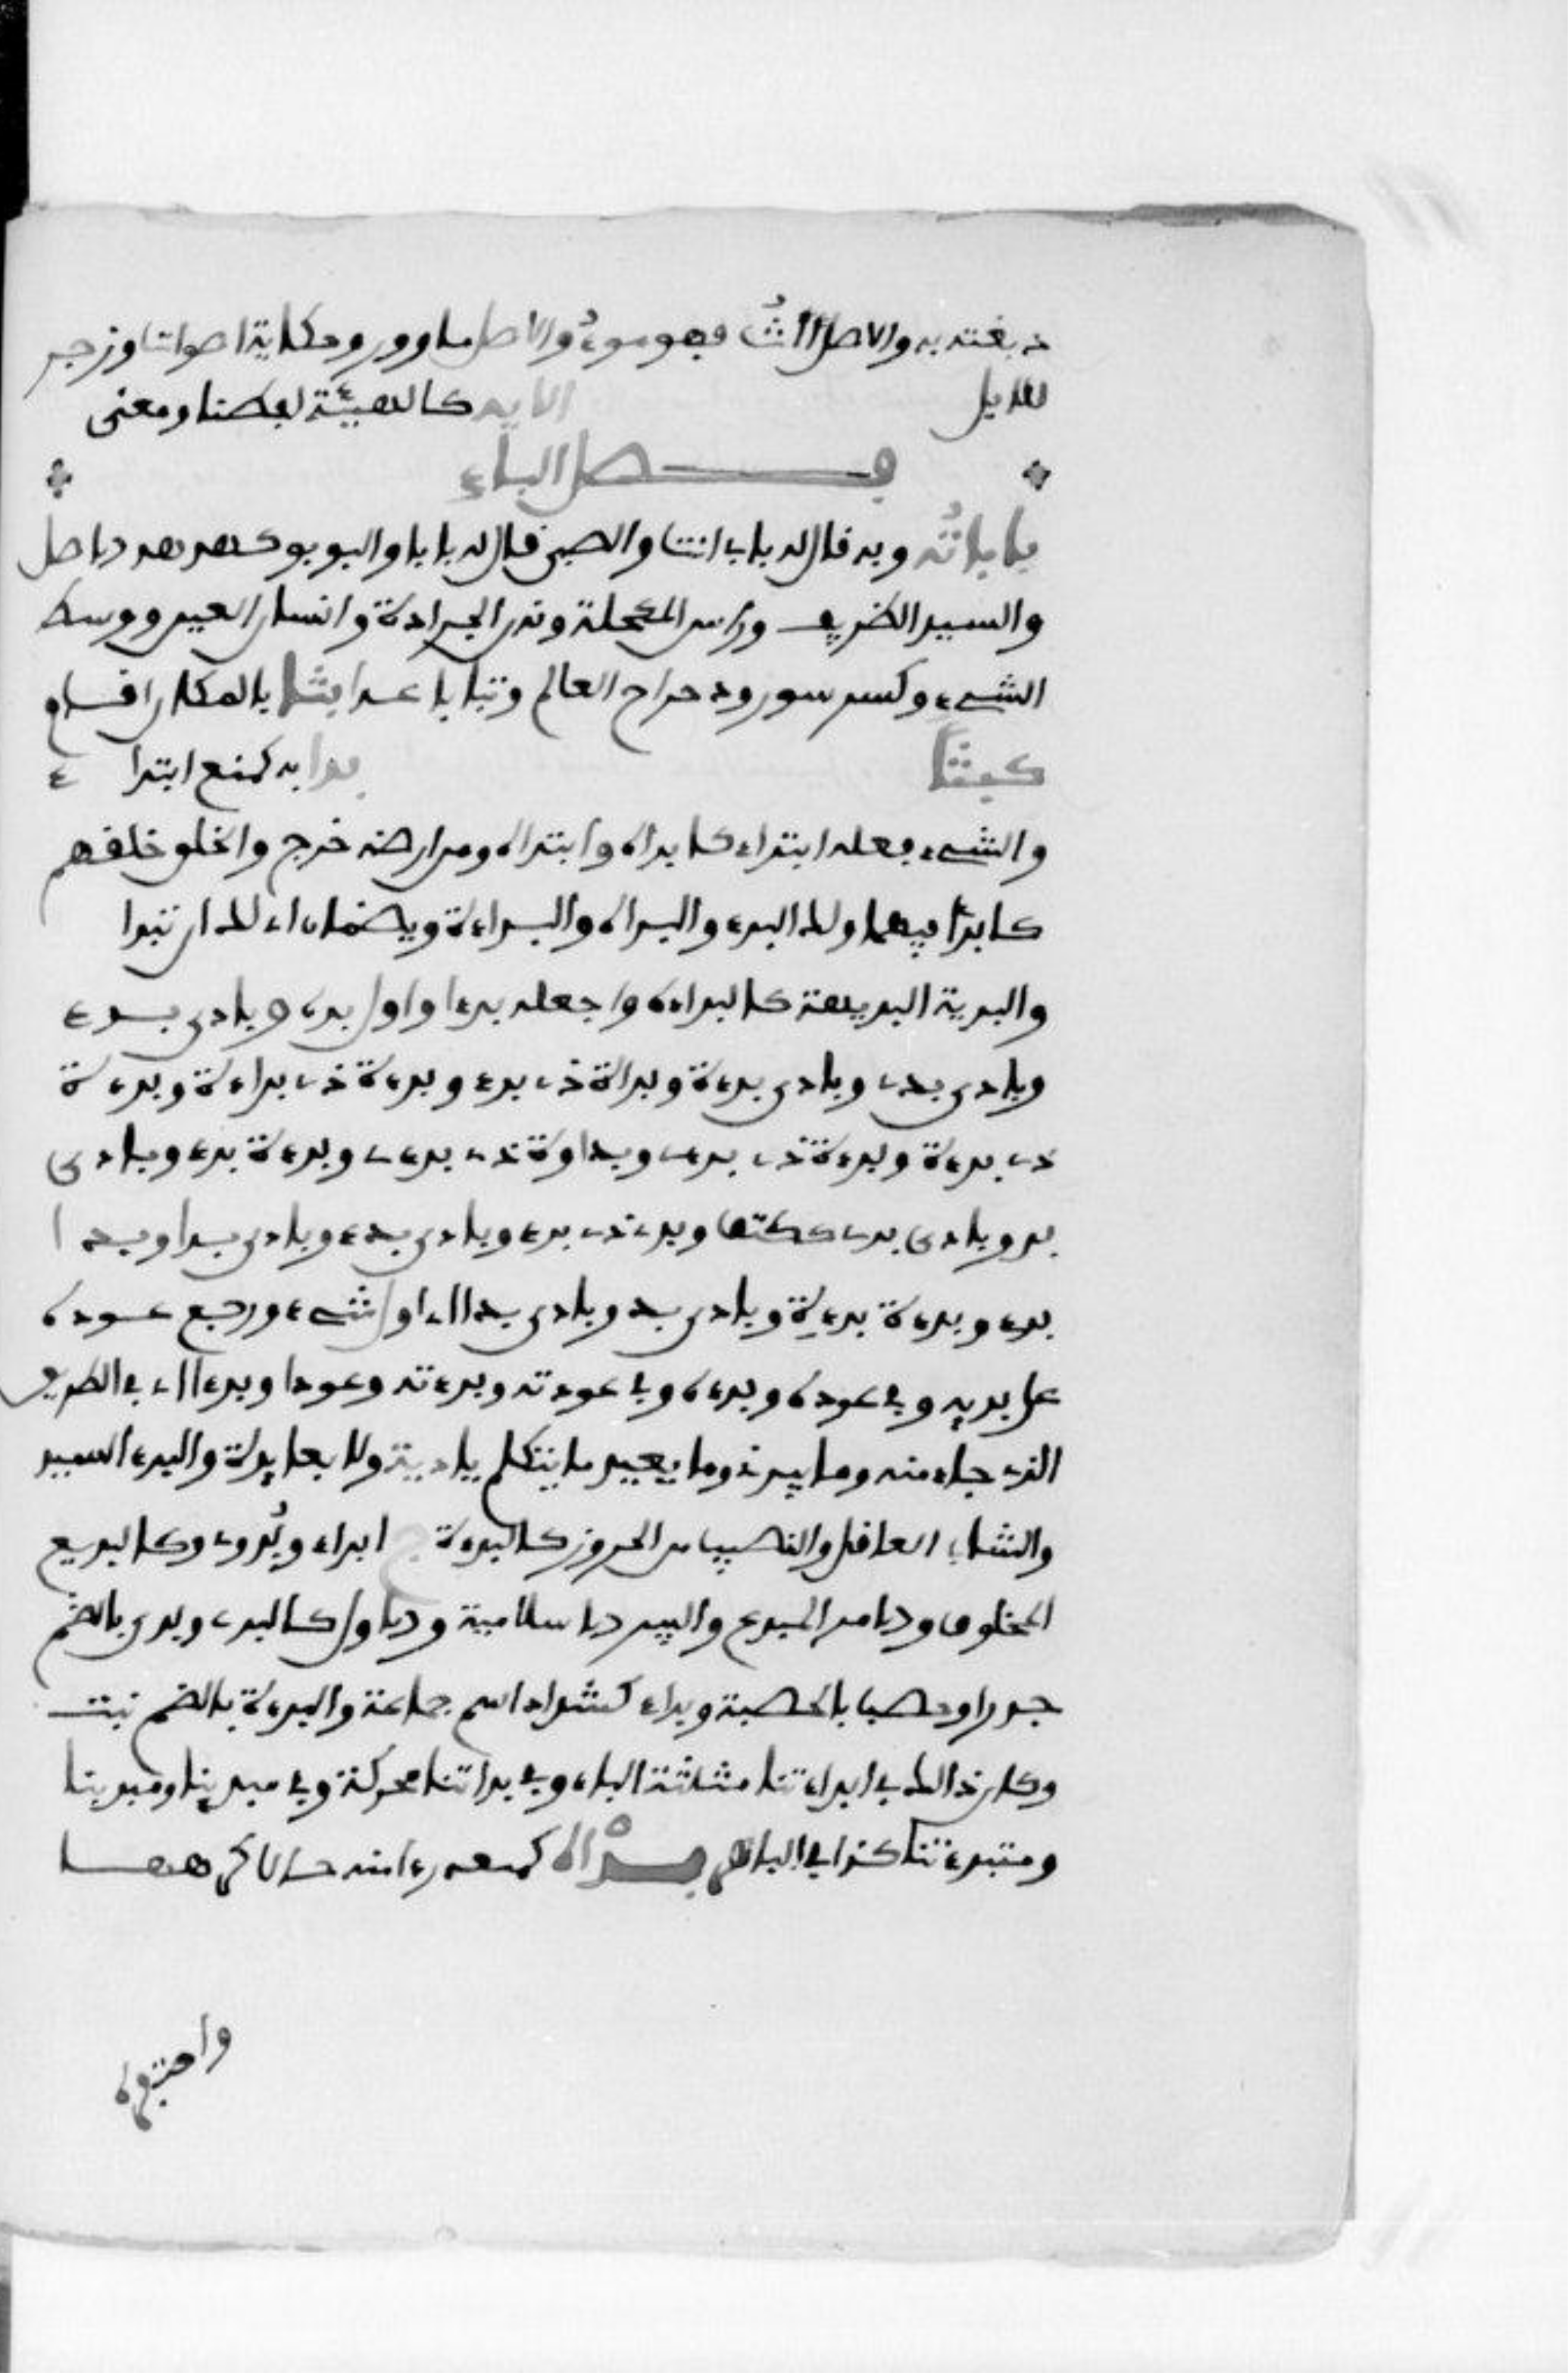 دبغته به والاصل أأت فهو موء والاصل ماوور وحكاية اصوات وزجر
للابل الايه كالهيئة لفظا ومعنى
فصل الباء
باباته وبه قال له بابي انت والصبى قال له بابا والبوبو كهدهد الاصل
والسيد الظريف وراس المكحلة وبدن الجرادة وانسان العين ووسط
الشيء وكسرسور ودحداح العالم وتبابا عدا بتا بالمكان اقام
كبثا بدا به كمنع ابتدا
والشيء فعله ابتداء كابداه وابتداه ومن ارضه خرج والخلق خلقهم
كابدا فيهما ولك البدء والبداه والبداءة ويضمان اي لك ان تبدا
والبدية البديهة كالبداءه وافعله بدءا واول بدء وبادي بدء
وبادي بدي وبادي بدءة وبداة ذي بدء وبدءة ذي بداءة وبدءة
ذي بدءة وبدءة ذي بدي وبداوة ذي بدي وبدءة بدء وبادي
بد وبادي بدي ككتف وبدي ذي بدي وبادي بدء وبادي بدا وبدا
بدء وبدءة بدءة وبادي بد وبادي بداء اي اول شيء ورجع عوده
على بديه وفي عوده وبدءه وفي عودته وبدءته وعودا وبدءا اي في الطريق
الذي جاء منه وما يبدئ وما يعيد ما يتكلم ببادية ولا بعايدة والبدء السيد
والشاب العاقل والنصيب من الجزور كالبدءة ج ابداء وبدوء وكالبديع
المخلوق والامر المبدع والبير الاسلامية والاول كالبدء وبدي بالضم
جدر او حصب بالحصبة وبداء ككتان اسم جماعة والبدءة بالضم نبت
وكان ذالك في ابداءتنا مثلثة الباء وفي بداتنا محركة وفي مبدينا ومبدينا
ومبدءتنا كذا في الباهر بذاه كمنعه راى منه حالا كرهها
واحتقره